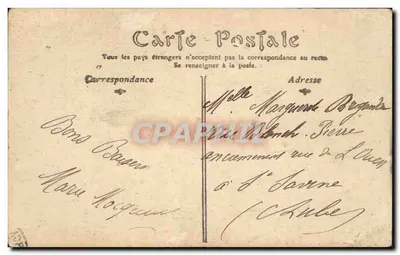 Carte Postale
Tous les pays étrangers n'acceptent pas la correspondance au recto
Se renseigner à la poste.
Correspondance
Adresse
Bons Baisers
Marie
Melle Marguerite
Pierre
anciennement rue de L'Ouest
à Ste Savine
(Aube)